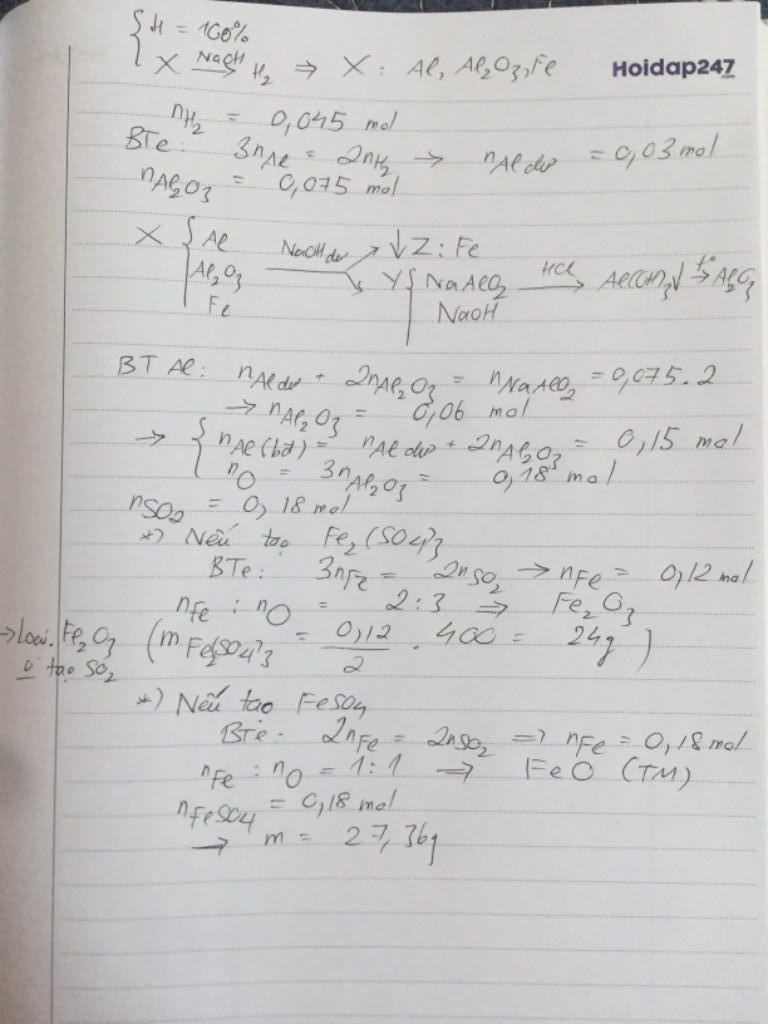 { H = 100%
X NaOH→ H₂ ⇒ X : Al, Al₂O₃, Fe
Hoidap247.com
nH₂ = 0,045 mol
BTe: 3nAl = 2nH₂ → nAl dư = 0,03 mol
nAl₂O₃ = 0,075 mol
X { Al Al₂O₃ Fe NaOH dư→ ↓Z : Fe
Y { NaAlO₂ NaOH HCl→ Al(OH)₃↓ t°→ Al₂O₃
BT Al: nAl dư + 2nAl₂O₃ = nNaAlO₂ = 0,075.2
→ nAl₂O₃ = 0,06 mol
→ { nAl (bđ) = nAl dư + 2nAl₂O₃ = 0,15 mol
nO = 3nAl₂O₃ = 0,18 mol
nSO₂ = 0,18 mol
*) Nếu tạo Fe₂(SO₄)₃
BTe: 3nFe = 2nSO₂ → nFe = 0,12 mol
nFe : nO = 2:3 ⇒ Fe₂O₃
→ Loại. Fe₂O₃ (mFe₂(SO₄)₃ = 0,12/2 . 400 = 24g)
tạo SO₂
*) Nếu tạo FeSO₄
BTe: 2nFe = 2nSO₂ ⇒ nFe = 0,18 mol
nFe : nO = 1:1 ⇒ FeO (TM)
nFeSO₄ = 0,18 mol
→ m = 27,36g